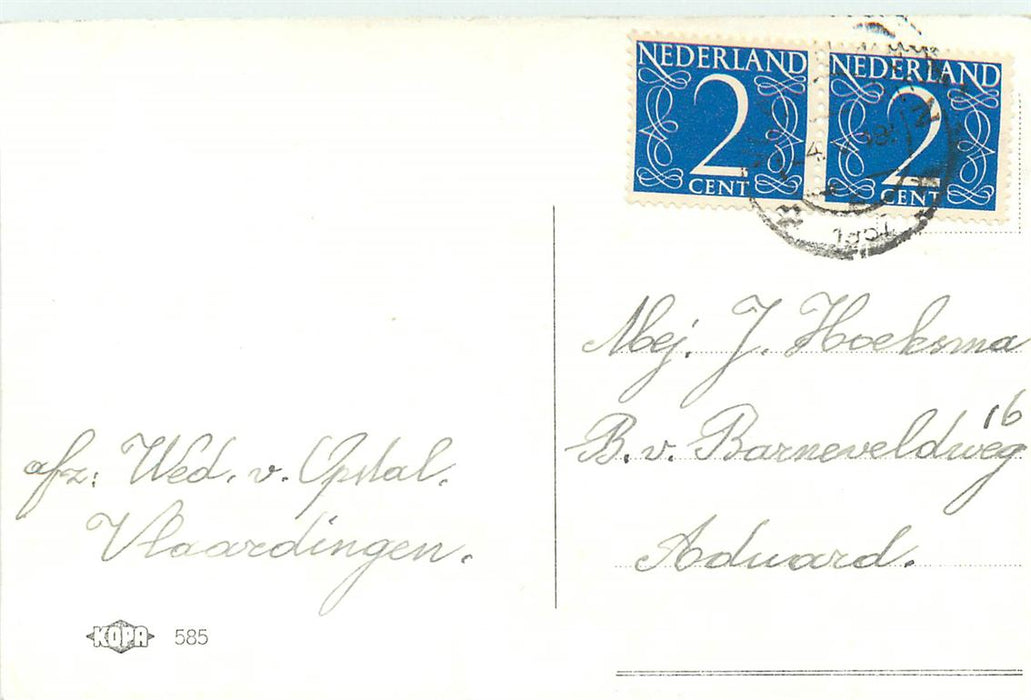 NEDERLAND NEDERLAND
2 2
CENT CENT
Mej. J. Hoeksma
B. v. Barneveldweg 16
Aduard.
afz: Wed. v. Opstal.
Vlaardingen.
KOPA 585